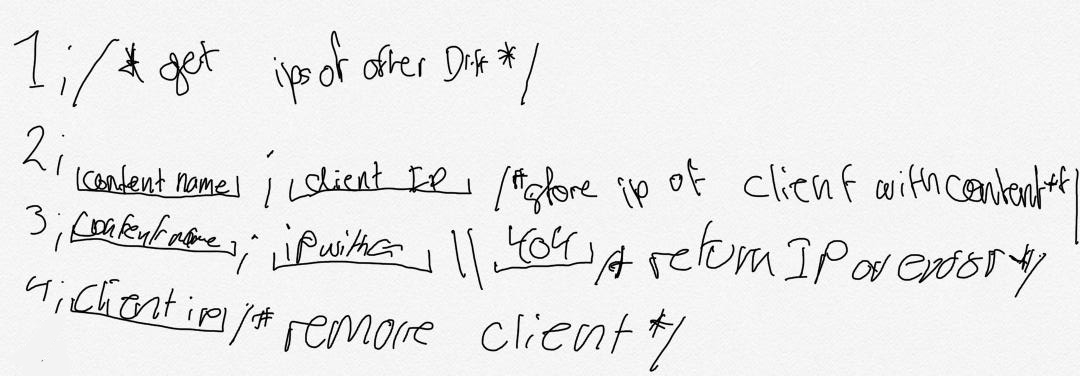 1;/* get ips of other DHT */
2; content name ; client IP /* store ip of client with content */
3; content name ; ip with || 404 /* return IP or error */
4; client ip /* remove client */